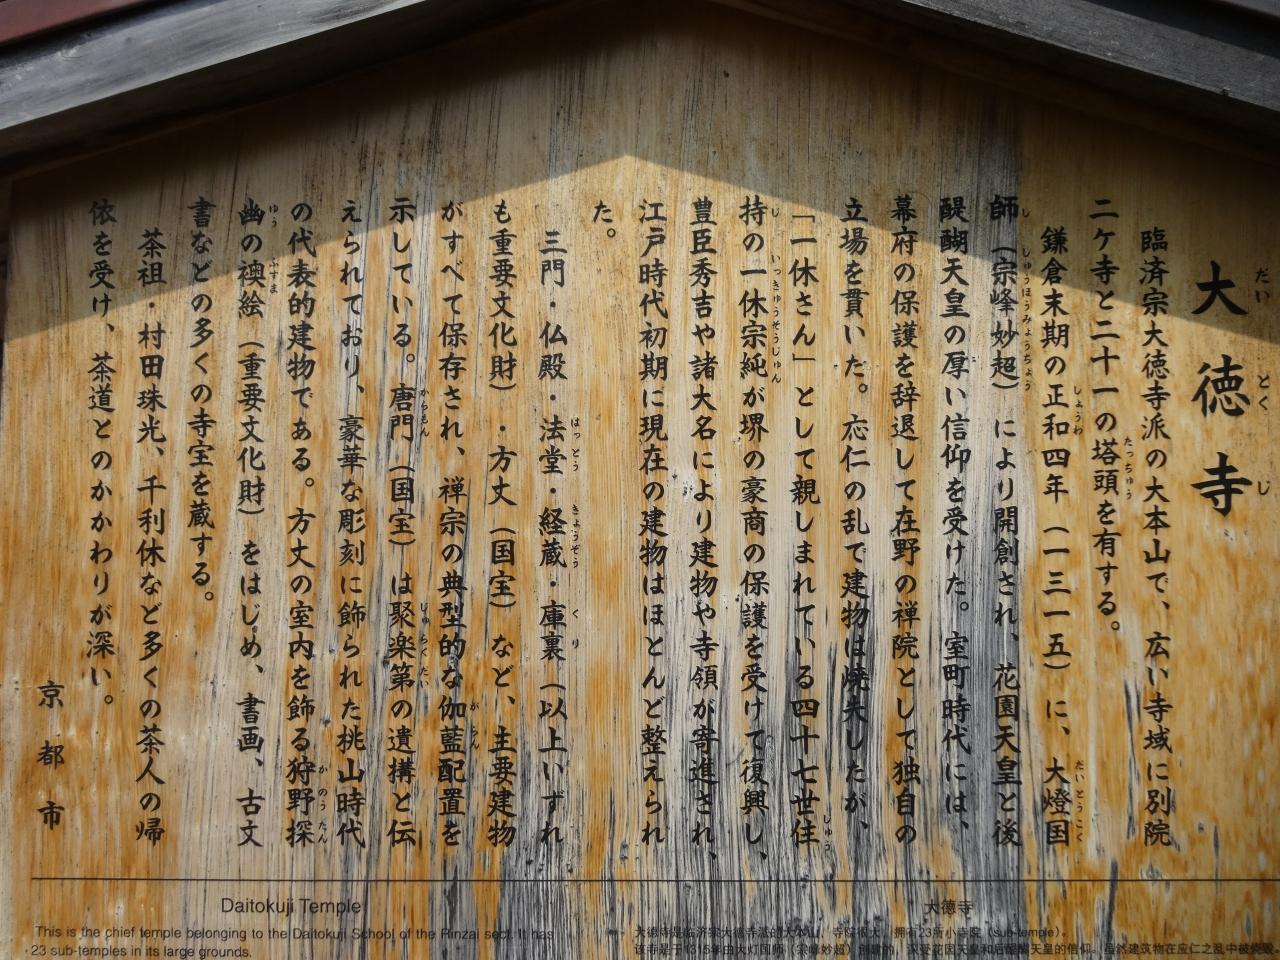 大徳寺
臨済宗大徳寺派の大本山で、広い寺域に別院
二ケ寺と二十一の塔頭を有する。
鎌倉末期の正和四年（一三一五）に、大燈国
師（宗峰妙超）により開創され、花園天皇と後
醍醐天皇の厚い信仰を受けた。室町時代には、
幕府の保護を辞退して在野の禅院として独自の
立場を貫いた。応仁の乱で建物は焼失したが、
「一休さん」として親しまれている四十七世住
持の一休宗純が堺の豪商の保護を受けて復興し、
豊臣秀吉や諸大名により建物や寺領が寄進され、
江戸時代初期に現在の建物はほとんど整えられ
た。
三門・仏殿・法堂・経蔵・庫裏（以上いずれ
も重要文化財）・方丈（国宝）など、主要建物
がすべて保存され、禅宗の典型的な伽藍配置を
示している。唐門（国宝）は聚楽第の遺構と伝
えられており、豪華な彫刻に飾られた桃山時代
の代表的建物である。方丈の室内を飾る狩野探
幽の襖絵（重要文化財）をはじめ、書画、古文
書などの多くの寺宝を蔵する。
茶祖・村田珠光、千利休など多くの茶人の帰
依を受け、茶道とのかかわりが深い。
京都市
Daitokuji Temple
This is the chief temple belonging to the Daitokuji School of the Rinzai sect. It has
23 sub-temples in its large grounds.
大德寺
大德寺是临济宗大德寺派的大本山，寺院很大，拥有23所小寺院（sub-temple）。
该寺是于1315年由大灯国师（宗峰妙超）创建的，深受花园天皇和后醍醐天皇的信仰。虽然建筑物在应仁之乱中被烧毁